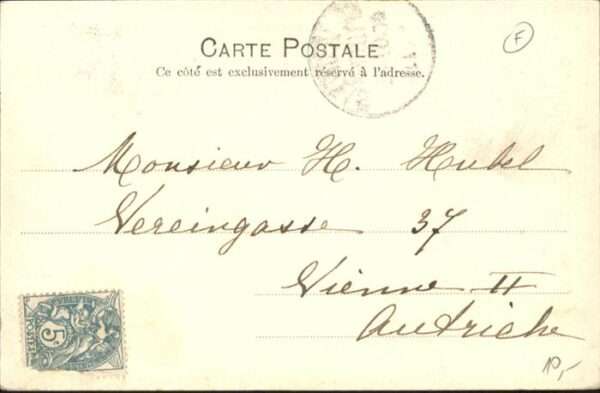 CARTE POSTALE
Ce côté est exclusivement réservé à l'adresse.
F
Monsieur H. Hubel
Vereingasse 37
Vienne II
Autriche
5
POSTES
10,-